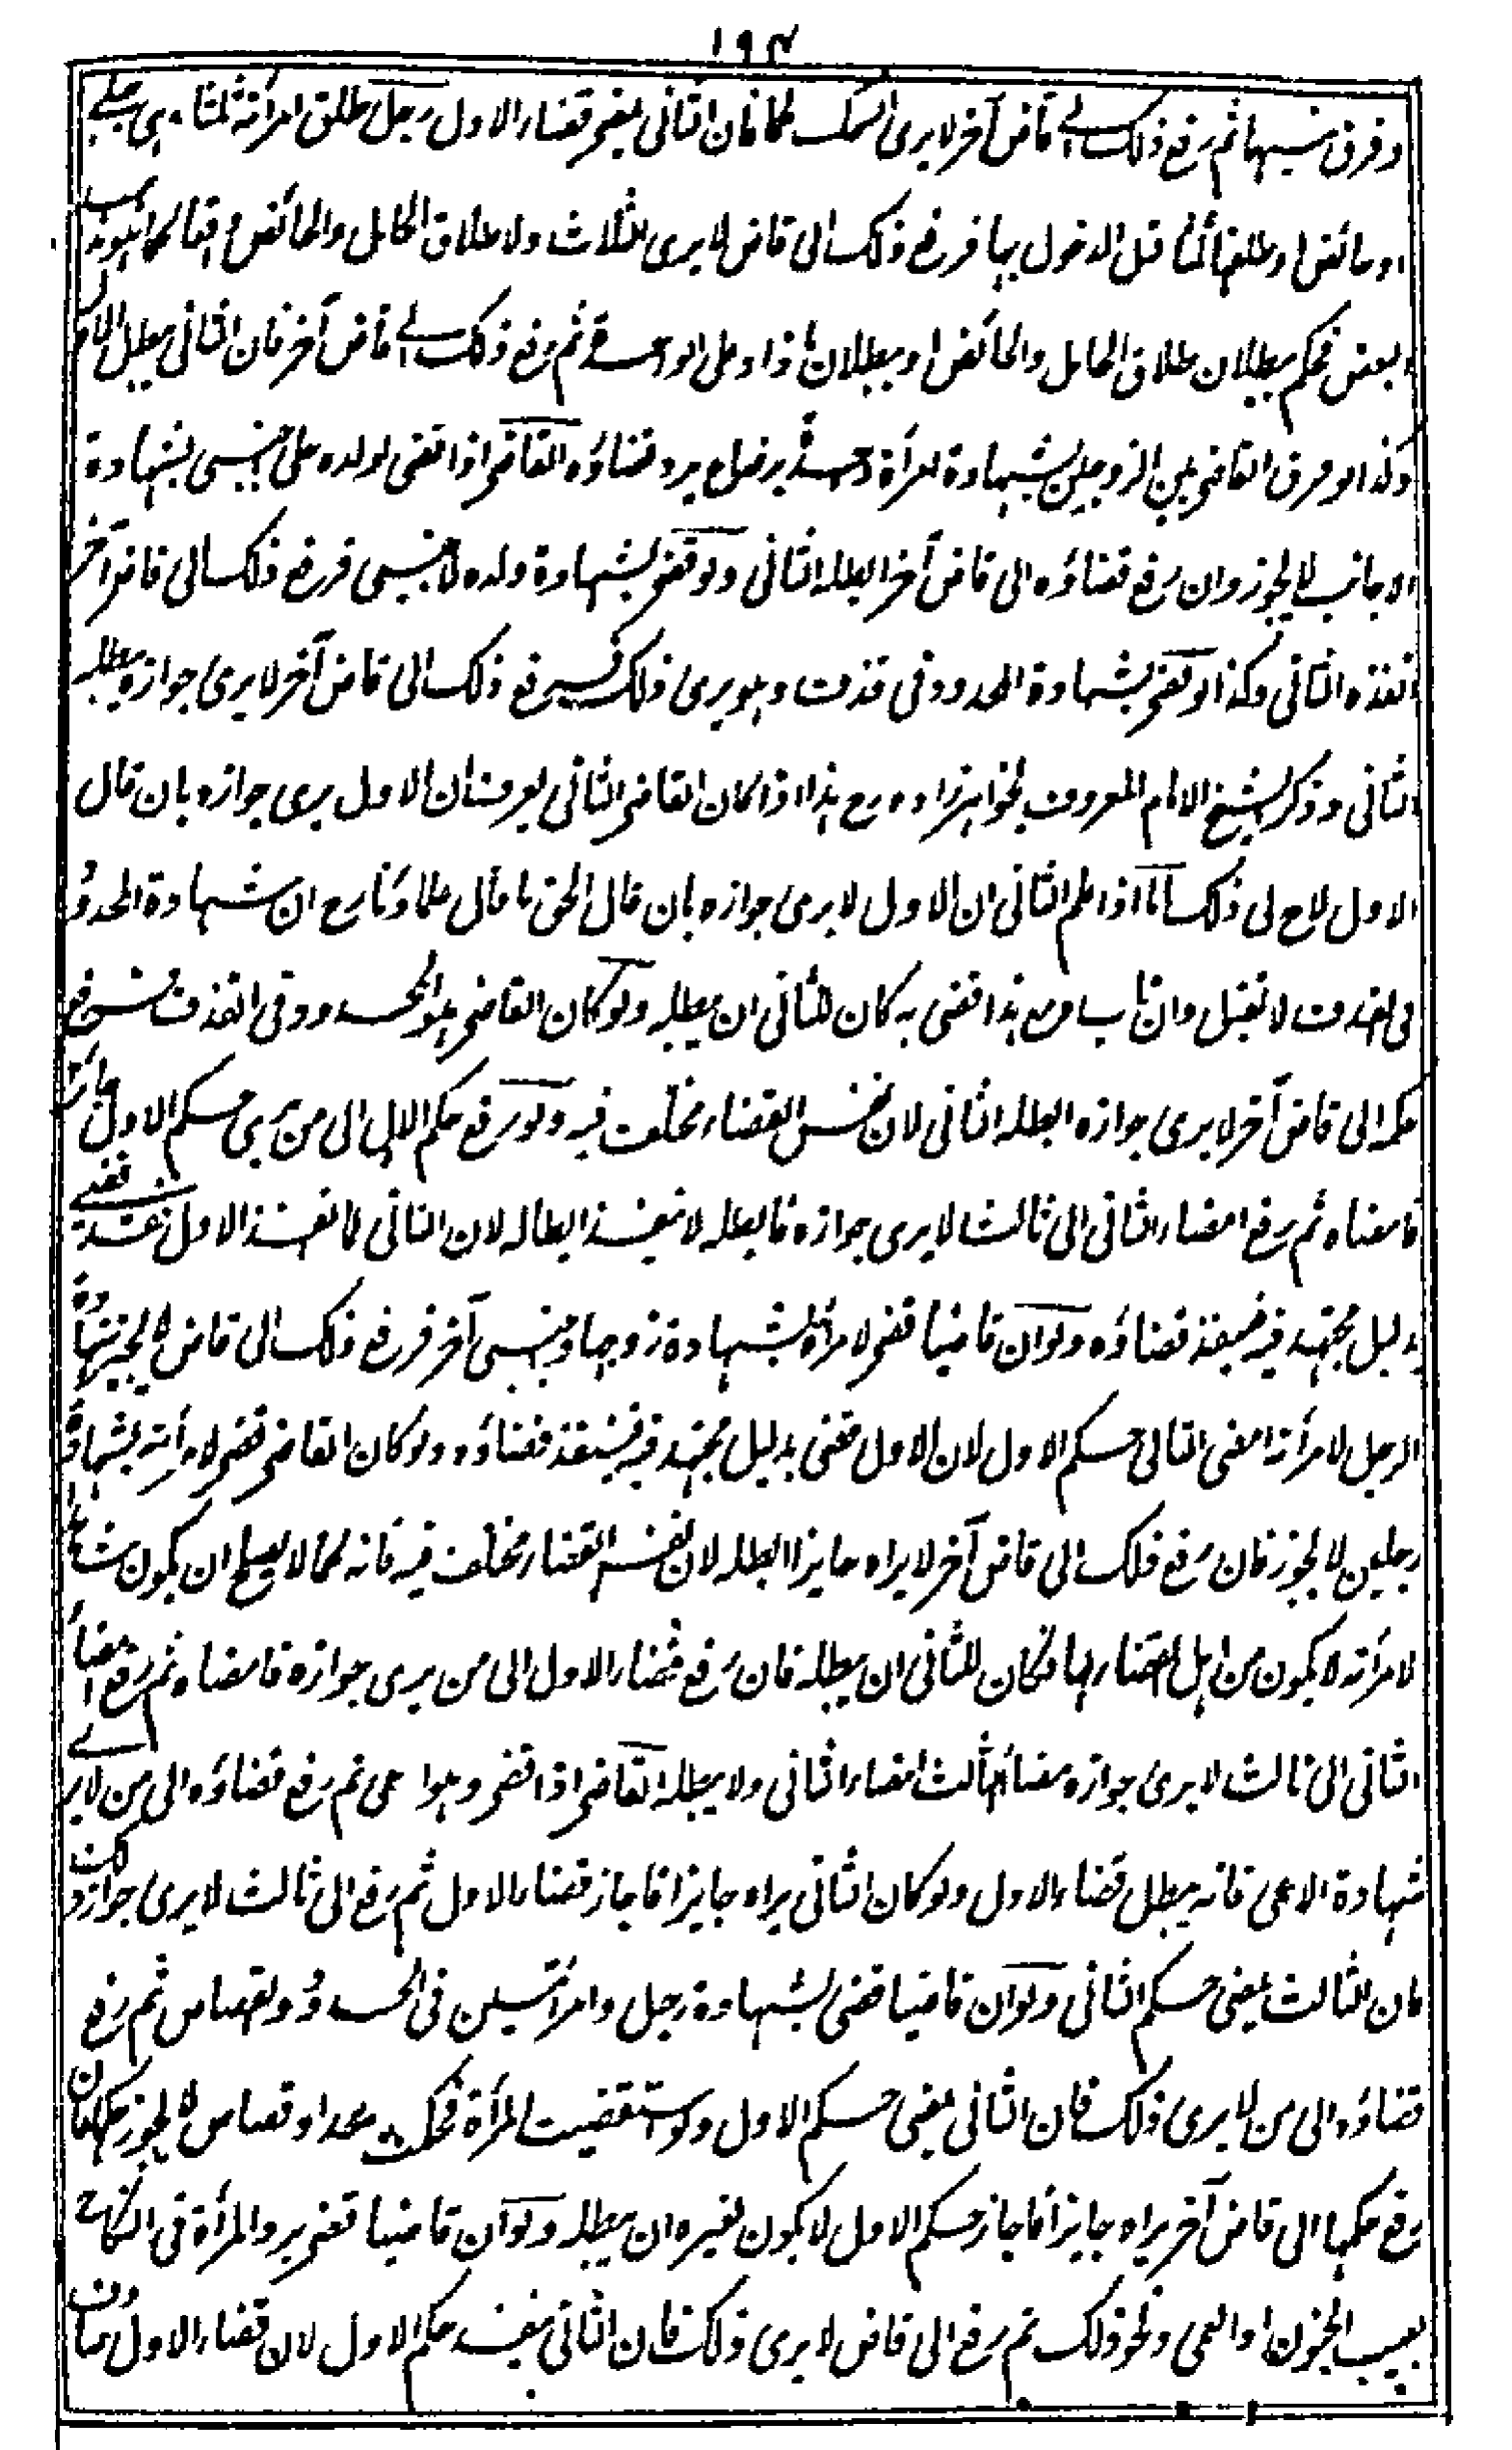 ١٩٤
وفرق بينهما ثم رفع ذلك الى قاض آخر لا يرى الحكم كذلك فان الثانى يمضى قضاء الاول رجل طلق امرأته ثلثا وهى حبلى
او حائض او طلقها ثلثا قبل الدخول بها فرفع ذلك الى قاض لا يرى الثلاث ولا طلاق الحامل والحائض واقعا كما هو مذهب
البعض فحكم ببطلان طلاق الحامل والحائض او ببطلان ما زاد على الواحدة ثم رفع ذلك الى قاض آخر فان الثانى يبطل
وكذا لو فرق القاضى بين الزوجين بشهادة امرأة واحدة برضاع يرد قضاؤه القاضى اذا قضى لولده على اجنبى بشهادة
الاجانب لا يجوز وان رفع قضاؤه الى قاض آخر ابطله الثانى ولو قضى بشهادة ولده لاجنبى فرفع ذلك الى قاض آخر
انفذه الثانى وكذا لو قضى بشهادة المحدود فى قذف وهو يرى ذلك فرفع ذلك الى قاض آخر لا يرى جوازه يبطله
الثانى وذكر الشيخ الامام المعروف بخواهرزاده رح هذا اذا كان القاضى الثانى يعرف ان الاول يرى جوازه بان قال
الاول لاح لى ذلك اما اذا علم الثانى ان الاول لا يرى جوازه بان قال الحق ما قال علماؤنا رح ان شهادة المحدود
فى القذف لا تقبل وان تاب ومع هذا قضى به كان للثانى ان يبطله ولو كان القاضى هو المحدود فى القذف فرفع
حكمه الى قاض آخر لا يرى جوازه ابطله الثانى لان نفس القضاء مختلف فيه ولو رفع حكم الاول الى من يرى حكم الاول جائزا
فامضاه ثم رفع امضاء الثانى الى ثالث لا يرى جوازه فابطله لا ينفذ ابطاله لان الثانى لما نفذ الاول فقد قضى
بدليل مجتهد فيه فينفذ قضاؤه ولو ان قاضيا قضى لامرأة بشهادة زوجها واجنبى آخر فرفع ذلك الى قاض لا يجيز شهادة
الرجل لامرأته امضى الثانى حكم الاول لان الاول قضى بدليل مجتهد فيه فينفذ قضاؤه ولو كان القاضى قضى لامرأته بشهادة
رجلين لا يجوز فان رفع ذلك الى قاض آخر لا يراه جايزا ابطله لان نفس القضاء مختلف فيه فانه كما لا يصلح ان يكون شاهدا
لامرأته لا يكون من اهل القضاء لها فكان للثانى ان يبطله فان رفع قضاء الاول الى من يرى جوازه فامضاه ثم رفع امضاء
الثانى الى ثالث لا يرى جوازه امضى الثالث امضاء الثانى ولا يبطله القاضى اذا قضى وهو اعمى ثم رفع قضاؤه الى من لا يرى
شهادة الاعمى فانه يبطل قضاء الاول ولو كان الثانى يراه جايزا فاجاز قضاء الاول ثم رفع الى ثالث لا يرى جواز ذلك
فان الثالث يمضى حكم الثانى ولو ان قاضيا قضى بشهادة رجل وامرأتين فى الحدود والقصاص ثم رفع
قضاؤه الى من لا يرى ذلك فان الثانى يمضى حكم الاول ولو استقضيت المرأة فحكمت بحد او قصاص لا يجوز حكمها فان
رفع حكمها الى قاض آخر يراه جايزا فاجاز حكم الاول لا يكون لغيره ان يبطله ولو ان قاضيا قضى برد المرأة فى النكاح
بعيب الجنون او العمى ونحو ذلك ثم رفع الى قاض لا يرى ذلك فان الثانى ينفذ حكم الاول لان قضاء الاول صادف